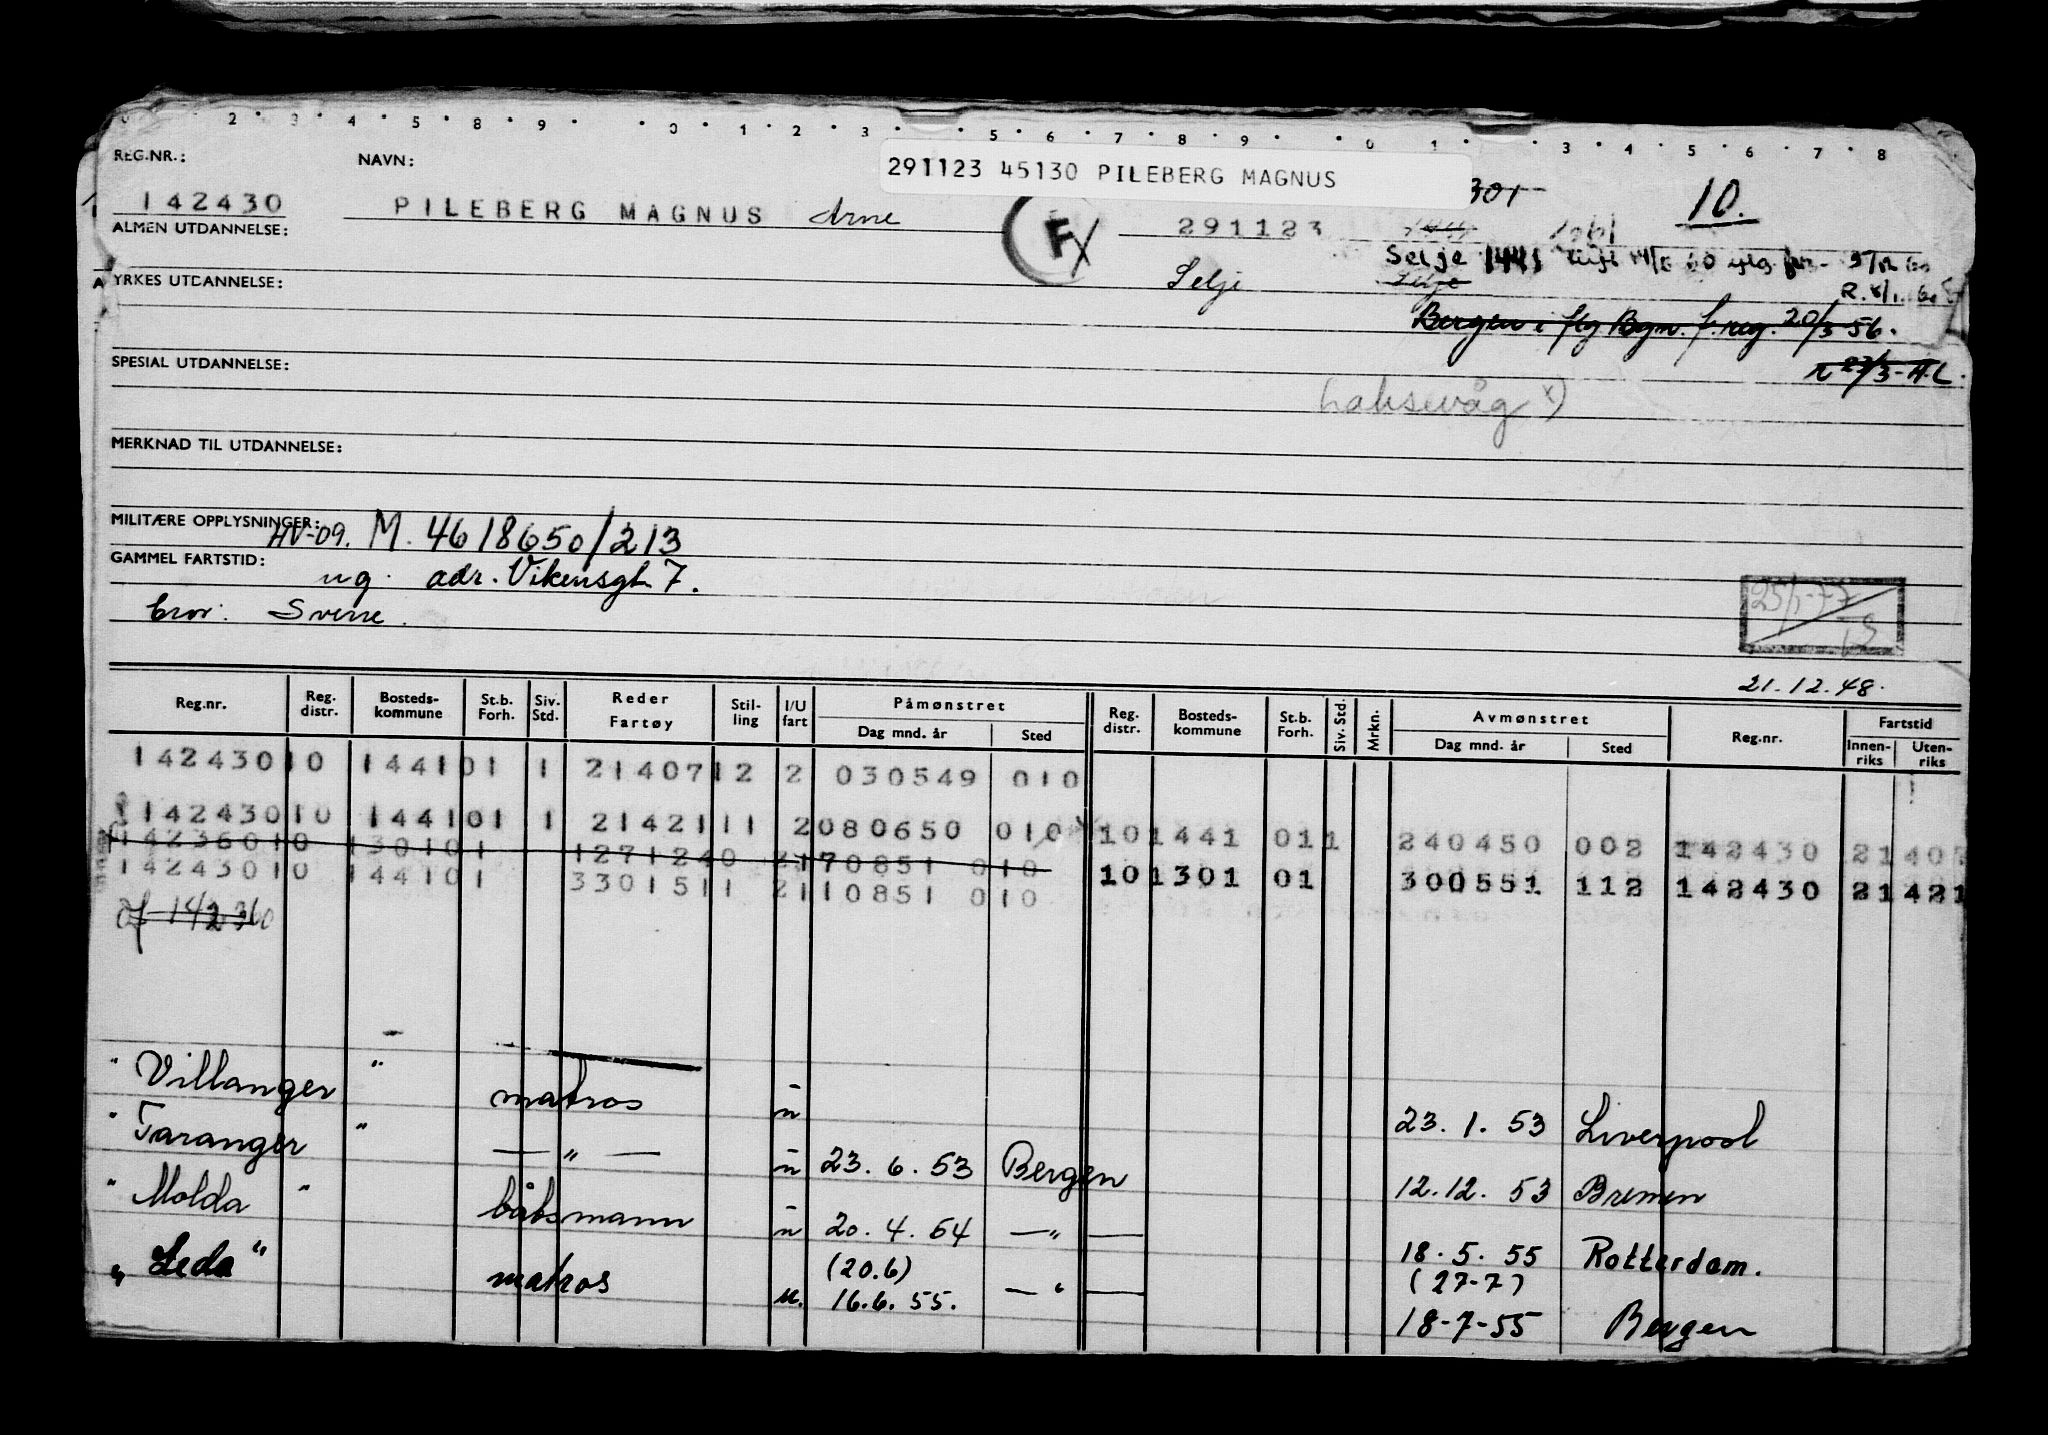 2 3 4 5 8 9 0 1 2 3 5 6 7 8 9 0 1 3 4 5 6 7 8
REG.NR.: NAVN:
291123 45130 PILEBERG MAGNUS
301 10.
142430 PILEBERG MAGNUS Arne F 291123
ALMEN UTDANNELSE:
Selje 1441
YRKES UTDANNELSE: Selje Selje
Bergen i flg Bgn. f. reg. 20/3 56.
SPESIAL UTDANNELSE: r 23/3 - A.L.
Laksevåg x)
MERKNAD TIL UTDANNELSE:
MILITÆRE OPPLYSNINGER: HV-09. M. 4618650/213
GAMMEL FARTSTID: ug. adr. Vikensgt. 7.
bror: Sverre.
25/1-77
21.12.48.
Reg.nr. Reg. distr. Bosteds- kommune St.b. Forh. Siv. Std. Reder Fartøy Stil- ling I/U fart Påmønstret Dag mnd. år Sted Reg. distr. Bosteds- kommune St.b. Forh. Siv. Std. Mrkn. Avmønstret Dag mnd. år Sted Reg.nr. Fartstid Innen- riks Uten- riks
142430 10 1441 01 1 21407 12 2 030549 010
142430 10 1441 01 1 21421 11 2 080650 010 10 1441 01 1 240450 002 142430 21 40
142360 10 1301 01 12712 40 2 170851 010
142430 10 1441 01 33015 11 2 110851 010 10 1301 01 300551 112 142430 21 421
of 142360
" Villanger " matros u 23. 1. 53 Liverpool
" Taranger " — " — u 23. 6. 53 Bergen 12. 12. 53 Bremen
" Molda " båtsmann u 20. 4. 54 — " — 18. 5. 55 Rotterdam.
(20.6) (27-7)
" Leda " matros u. 16.6. 55. — " — 18-7-55 Bergen